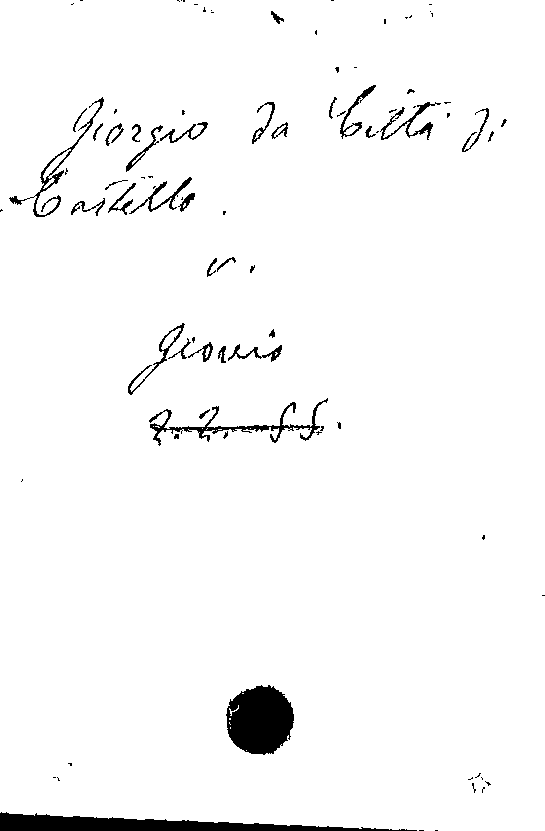 Giorgio da Città di
Castello.
v.
Giovio